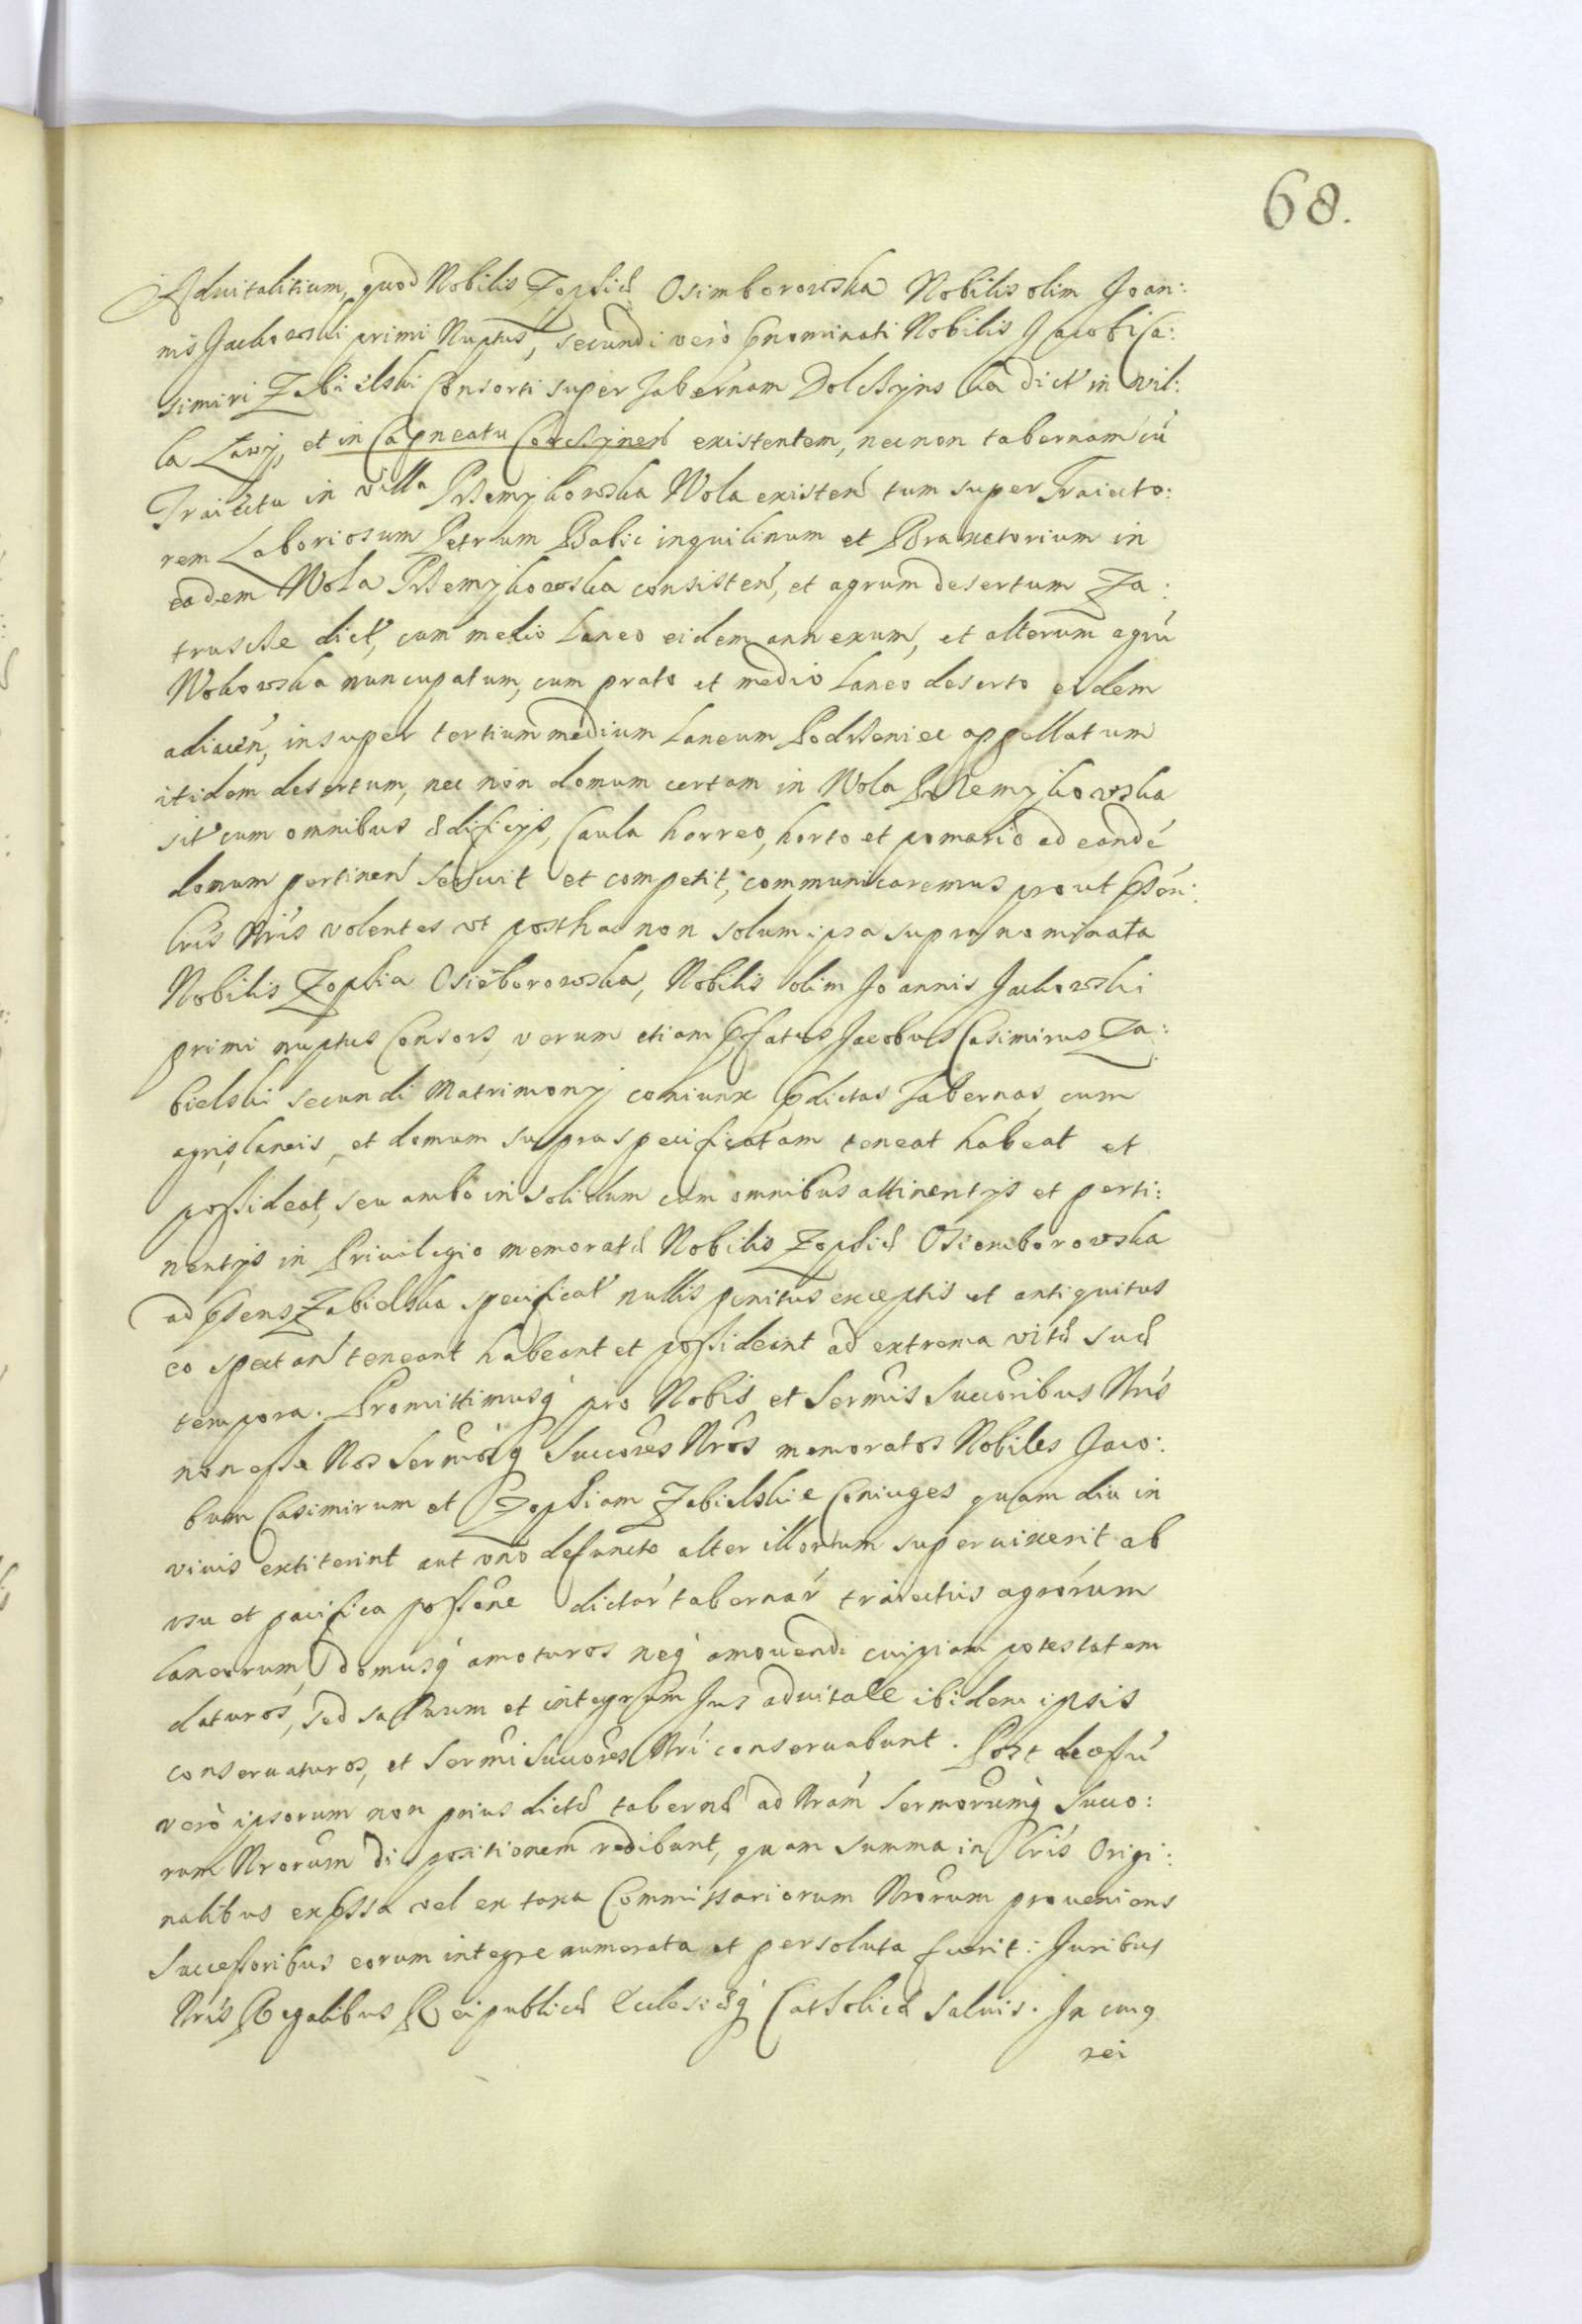 68.
Aduitalitium, quod Nobilis Zophiæ Osimborowska Nobilis olim Joan:
nis Jackowski primi Nuptus, secundi verò pnominati Nobilis Jacobi Ca:
simiri Zabielski Consorti super Tabernam Dolchyns ka dict in vil:
la Lawy, et in Capneatu Cerchynen existentem, nec non tabernam cú
Traiectu in villa Przemykowska Wola existen tum super Traiecto:
rem Laboriosum Petrum Babic inquilinum et Braxatorium in
eadem Wola Przemykowska consisten, et agrum desertum Za:
truscze dict, cum medio Laneo eidem annexum, et alterum agrú
Wokowska nuncupatum, cum prato et medio Laneo deserto eidem
adiacén, insuper tertium medium Laneum Podszeniec appellatum
itidem desertum, nec non domum certam in Wola Przemykowska
sit cum omnibus ædificijs, Caula horreo, horto et pomario ad eandé
domum pertinen seruit et competit, communicaremus prout psén:
lrís Nrís volentes vt posthac non solum ipsa supra nominata
Nobilis Zophia Osiēborowska, Nobilis olim Joannis Jackowski
primi nuptus Consors, verum etiam pfatus Jacobus Casimirus Za:
bielski secundi Matrimonij coniunx pdictas Tabernas cum
agris, laneis, et domum supra specificatam teneat habeat et
possideat, seu ambo in solidum cum omnibus attinentijs et perti:
nentijs in Priuilegio memoratæ Nobilis Zophiæ Osiemborowska
ad psens Zabielska specificat nullis penitus exceptis et antiquitus
eo spectan teneant habeant et possideant ad extrema vitæ suæ
tempora. Promittimusq pro Nobis et Sermis Succoribus Nrís
non esse Nos Sermosq Succores Nros memoratos Nobiles Jaco:
bum Casimirum et Zophiam Zabielskie Coniuges quam diu in
viuis extiterint aut vno defuncto alter illorum superuixerit ab
vsu et pacifica possone dictár tabernár traiectus agrórum
laneorum, domusq amoturos neq amouendi cuipiam potestatem
daturos, sed saluum et integrum Jus aduitale ibidem ipsis
conseruaturos, et Sermi Succores Nri conseruabunt. Post decessú
verò ipsorum non prius dictæ tabernæ ad Nram Sermorumq Succo:
rum Nrorum dispositionem redibunt, quam summa in lrís Origi:
nalibus expssa vel ex taxa Commissariorum Nrorum proueniens
Successoribus eorum integre numerata et persoluta fuerit: Juribus
Nrís Regalibus Reipublicæ Ecclesiæq Catholicæ saluis. In cuiq
rei